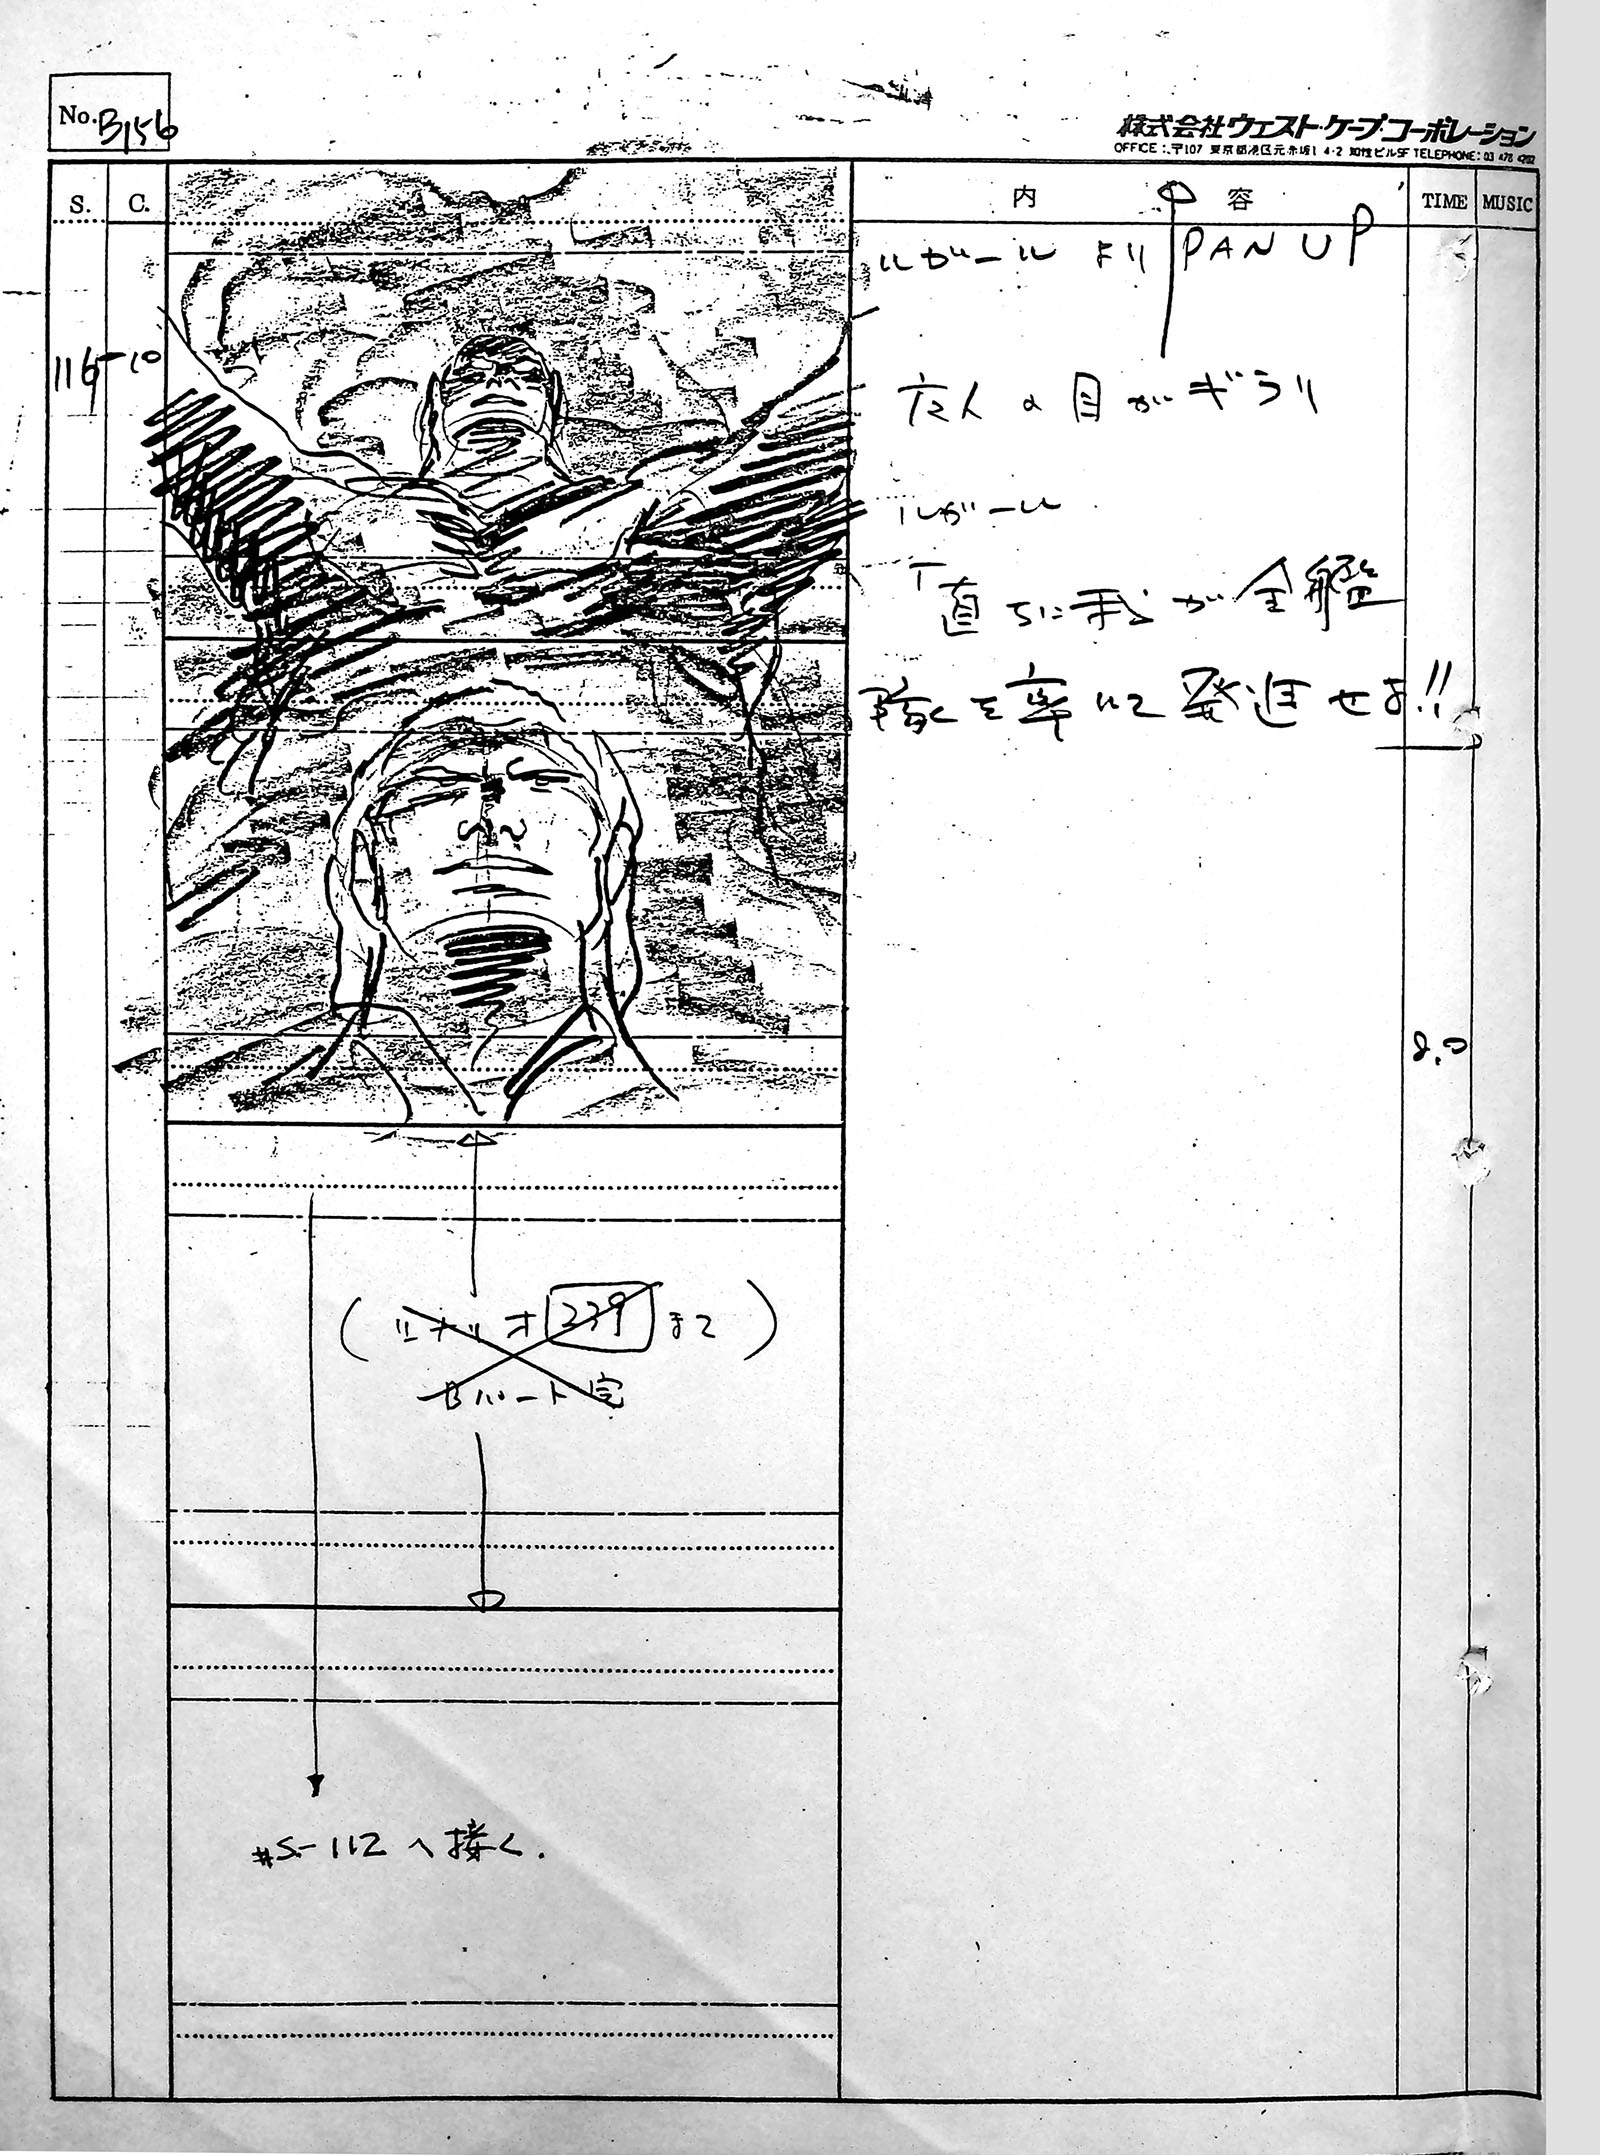 No. B156
株式会社ウェスト・ケープ・コーポレーション
OFFICE:〒107 東京都港区元赤坂1-4-2 知性ビル5F TELEPHONE: 03 478
S. C. 内容 TIME MUSIC
ルガールより PAN UP
116-10
の目がギラリ
ルガール
「直ちに我が全艦
隊を率いて発進せよ!!
8.0
(シナリオ 239 まで)
Bパート完
#S-112へ接く.